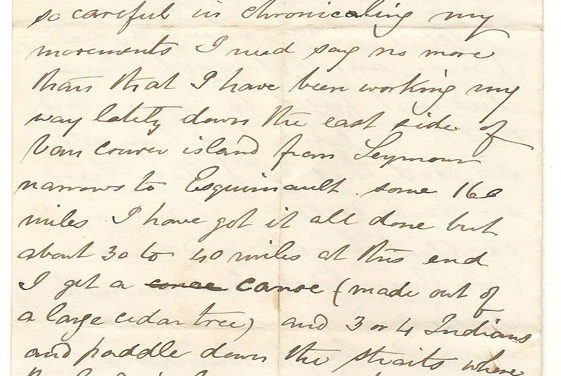 so careful in chronicaling my
movements I need say no more
than that I have been working my
way lately down the east side of
Van couver island from Seymour
narrows to Esquimault some 160
miles I have got it all done but
about 30 to 40 miles at this end
I get a canoe (made out of
a large cedar tree) and 3 or 4 Indians
and paddle down the straits where